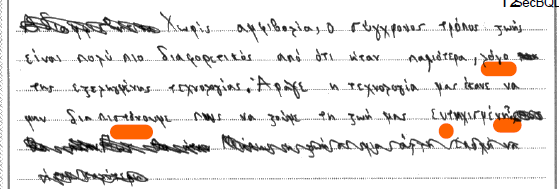 12SecBQL
Χωρίς αμφιβολία, ο σύγχρονος τρόπος ζωής
είναι πολύ πιο διαφορετικός από ότι ώταν παλιότερα, λόγο
της εξελιγμένης τεχνολογίας. Άραγε η τεχνολογία μας έκανε να
μην διαπιστόνουμε πως να ζούμε τη ζωή μας